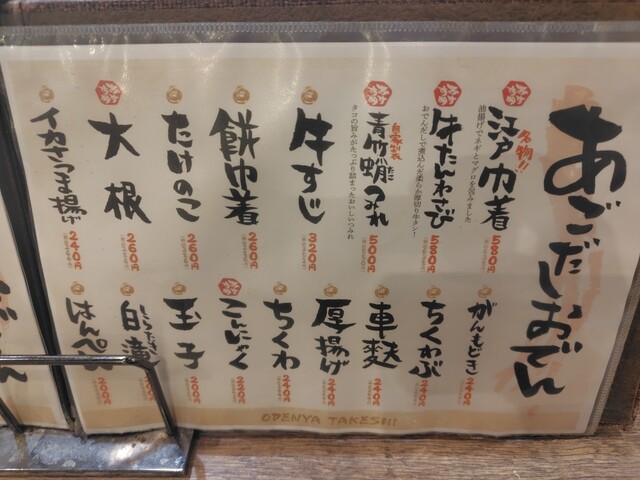 あごだしおでん
名物!!
江戸巾着
油揚げでネギとマグロを包みました
580円
牛たんわさび
おでんだしで煮込んだ柔らか厚切り牛タン!
580円
自家製
青竹蛸つみれ
タコの旨みがたっぷり詰まったおいしいつみれ
500円
牛すじ
320円
餅巾着
260円
たけのこ
260円
大根
260円
イカさつま揚げ
240円
がんもどき
240円
ちくわぶ
240円
車麩
240円
厚揚げ
240円
ちくわ
240円
こんにゃく
200円
玉子
200円
しらたき
白滝
はんぺん
200円
ODENYA TAKESHI